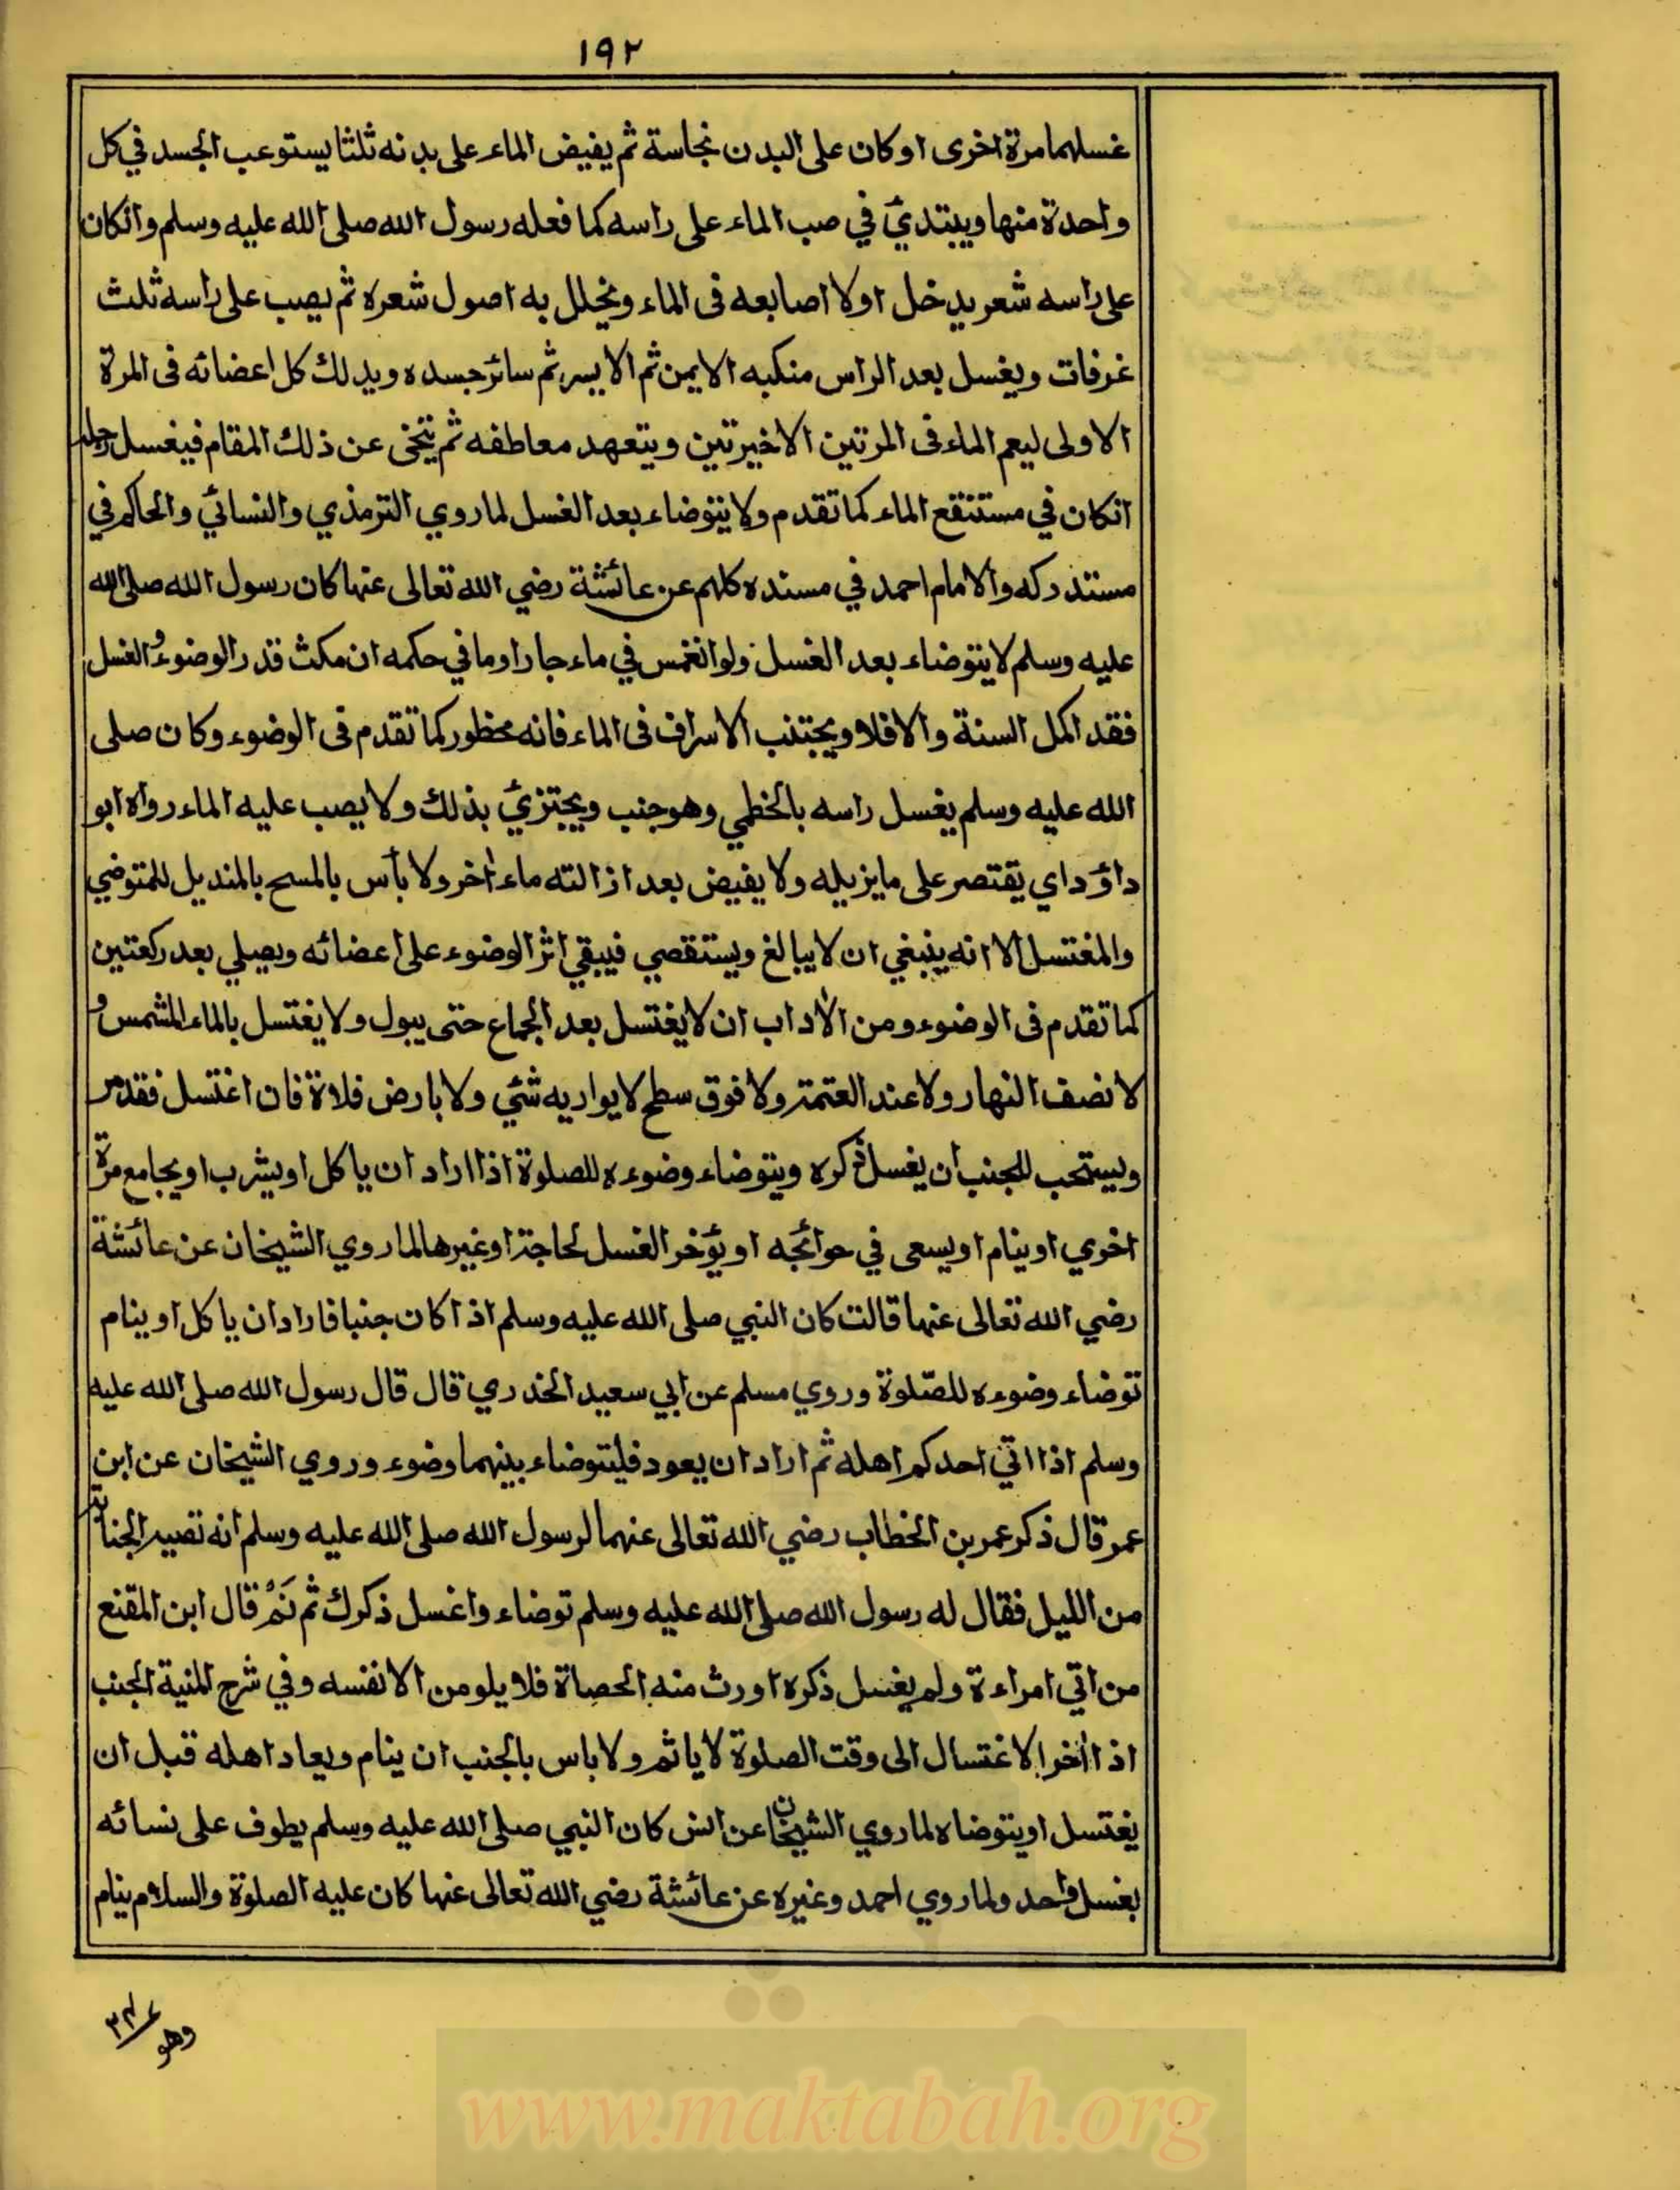 ١٩٢
غسلهما مرة اخرى اوكان على البدن نجاسة ثم يفيض الماء على بدنه ثلثا يستوعب الجسد في كل
واحدة منها ويبتدئ في صب الماء على راسه كما فعله رسول الله صلى الله عليه وسلم وانكان
على راسه شعر يدخل اولا اصابعه فى الماء ويخلل به اصول شعره ثم يصب على راسه ثلث
غرفات ويغسل بعد الراس منكبه الايمن ثم الايسر ثم سائر جسده ويدلك كل اعضائه فى المرة
الاولى ليعم الماء فى المرتين الاخيرتين ويتعهد معاطفه ثم يتنحى عن ذلك المقام فيغسل رجليه
انكان في مستنقع الماء كما تقدم ولا يتوضاء بعد الغسل لما روي الترمذي والنسائي والحاكم في
مستدركه والامام احمد في مسنده كلهم عن عائشة رضي الله تعالى عنها كان رسول الله صلى الله
عليه وسلم لا يتوضاء بعد الغسل ولو انغمس في ماء جار اوما في حكمه ان مكث قدر الوضوء والغسل
فقد اكمل السنة والا فلا ويجتنب الاسراف فى الماء فانه محظور كما تقدم فى الوضوء وكان صلى
الله عليه وسلم يغسل راسه بالخطمي وهو جنب ويجتزئ بذلك ولا يصب عليه الماء رواه ابو
داؤد اي يقتصر على ما يزيله ولا يفيض بعد ازالته ماء اخر ولا بأس بالمسح بالمنديل للمتوضي
والمغتسل الا انه ينبغي ان لا يبالغ ويستقصي فيبقي اثر الوضوء على اعضائه ويصلي بعد ركعتين
كما تقدم فى الوضوء ومن الأداب ان لا يغتسل بعد الجماع حتى يبول ولا يغتسل بالماء المشمس و
لا نصف النهار ولا عند العتمة ولا فوق سطح لا يواريه شئي ولا بارض فلاة فان اغتسل فقد مر
ويستحب للجنب ان يغسل ذكره ويتوضاء وضوءه للصلوة اذا اراد ان ياكل او يشرب او يجامع مرة
اخري او ينام او يسعى في حوائجه او يؤخر الغسل لحاجة او غيرها لما روي الشيخان عن عائشة
رضي الله تعالى عنها قالت كان النبي صلى الله عليه وسلم اذا كان جنبا فاراد ان ياكل او ينام
توضاء وضوءه للصّلوة وروي مسلم عن ابي سعيد الخدري قال قال رسول الله صلى الله عليه
وسلم اذا اتي احدكم اهله ثم اراد ان يعود فليتوضاء بينهما وضوء وروي الشيخان عن ابن
عمر قال ذكر عمر بن الخطاب رضي الله تعالى عنهما لرسول الله صلى الله عليه وسلم انه تصيبه الجنابة
من الليل فقال له رسول الله صلى الله عليه وسلم توضاء واغسل ذكرك ثم نَمْ قال ابن المقنع
من اتي امراءة ولم يغسل ذكره اورث منه الحصاة فلا يلومن الا نفسه وفي شرح المنية الجنب
اذا أخر الاغتسال الى وقت الصلوة لا ياثم ولا باس بالجنب ان ينام ويعاد اهله قبل ان
يغتسل او يتوضاء لما روي الشيخان عن انس كان النبي صلى الله عليه وسلم يطوف على نسائه
بغسل واحد ولما روي احمد وغيره عن عائشة رضي الله تعالى عنها كان عليه الصلوة والسلام ينام
وهو
www.maktabah.org